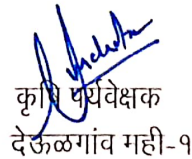 कृषि पर्यवेक्षक
देऊळगांव मही-१